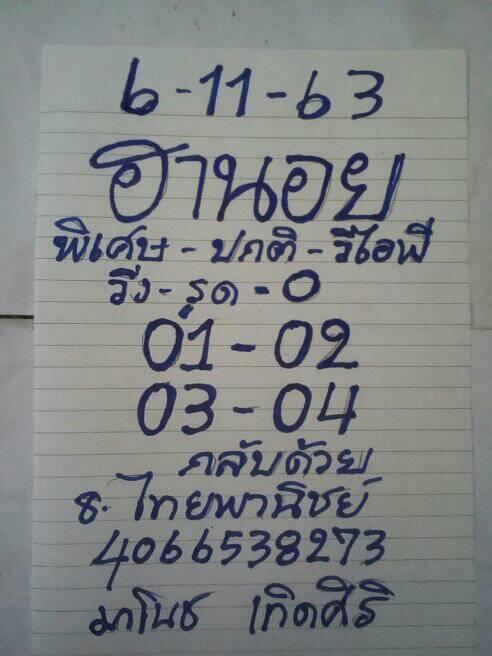 6-11-63
ฮานอย
พิเศษ - ปกติ - วีไอพี
วิ่ง - รูด = 0
01-02
03-04
กลับด้วย
ธ. ไทยพานิชย์
4066538273
มาโนช เกิดศิริ